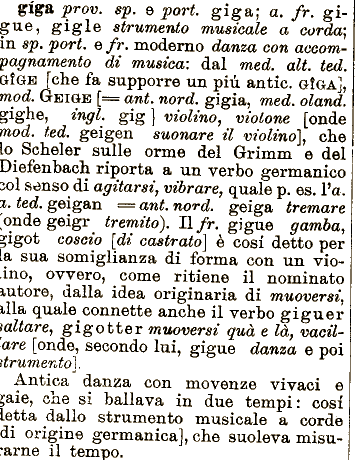 gíga prov. sp. e port. giga; a. fr. gi-
gue, gigle strumento musicale a corda;
in sp. port. e fr. moderno danza con accom-
pagnamento di musica: dal med. alt. ted.
GÎGE [che fa supporre un piú antic. GÎGA],
mod. GEIGE [= ant. nord. gigia, med. oland.
gighe, ingl. gig] violino, violone [onde
mod. ted. geigen suonare il violino], che
lo Scheler sulle orme del Grimm e del
Diefenbach riporta a un verbo germanico
col senso di agitarsi, vibrare, quale p. es. l'a.
a. ted. geigan = ant. nord. geiga tremare
(onde geigr tremito). Il fr. gigue gamba,
gigot coscio [di castrato] è cosí detto per
la sua somiglianza di forma con un vio-
lino, ovvero, come ritiene il nominato
autore, dalla idea originaria di muoversi,
alla quale connette anche il verbo giguer
saltare, gigotter muoversi quà e là, vacil-
lare [onde, secondo lui, gigue danza e poi
strumento].
Antica danza con movenze vivaci e
gaie, che si ballava in due tempi: cosí
detta dallo strumento musicale a corde
[di origine germanica], che suoleva misu-
rarne il tempo.